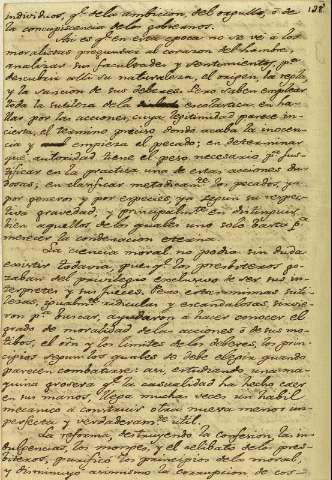 128
individuos, qᵉ de la ambicion, del orgullo, ó de
la concupiscencia de los poderosos.
Asi es qᵉ en esta epoca no se ve á los
moralistas preguntar al corazon del hombre,
analizar sus facultades y sentimientos, pᵃ
descubrir alli su naturaleza, el origen, la regla,
y la sancion de sus deberes. Pero saben emplear
toda la sutileza de la escolastica en ha-
llar por las acciones, cuya legitimidad parece in-
cierta, el termino preciso donde acaba la inocen-
cia y empieza el pecado; en determinar
que autoridad tiene el peso necesario pᵃ jus-
tificar en la practica una de estas acciones du-
dosas; en clasificar metodicamᵗᵉ los pecados, ya
por generos y por especies, ya segun su respec-
tiva gravedad, y principalmᵗᵉ en distinguir
bien aquellos de los quales uno solo basta pᵃ
merecer la condenacion eterna.
La ciencia moral no podia sin duda
existir todavia, puesqᵉ los presbiteros go-
zaban del privilegio exclusivo de ser sus in-
terpretes y sus jueces. Pero estas mismas suti-
lezas, igualmᵗᵉ ridiculas y escandalosas, sirvie-
ron pᵃ buscar, ayudaron a hacer conocer el
grado de moralidad de las acciones ó de sus mo-
tibos, el orn y los limites de los deberes, los prin-
cipios segun los quales se debe elegir quando
parecen combatirse: asi, estudiando una ma-
quina grosera qᵉ la casualidad ha hecho caer
en sus manos, llega muchas veces un habil
mecanico a construir otra nueva menos im-
perfecta y verdaderamᵗᵉ util.
La reforma, destruyendo la confesion, las in-
dulgencias, los monges, y el celibato de los pres-
biteros, purificó los principios de la moral,
y disminuyó asimismo la corrupcion de cos-